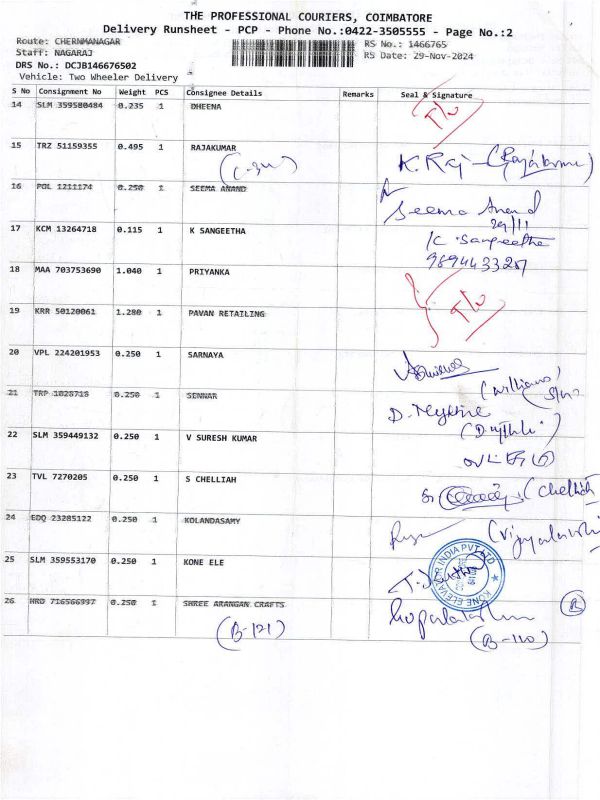 THE PROFESSIONAL COURIERS, COIMBATORE
Delivery Runsheet - PCP - Phone No.:0422-3505555 - Page No.:2
Route: CHERNMANAGAR
RS No.: 1466765
Staff: NAGARAJ
RS Date: 29-Nov-2024
DRS No.: DCJB146676502
Vehicle: Two Wheeler Delivery
S No Consignment No Weight PCS Consignee Details Remarks Seal & Signature
14 SLM 359580484 0.235 1 DHEENA
15 TRZ 51159355 0.495 1 RAJAKUMAR K. Raj
16 POL 1211174 0.250 1 SEEMA ANAND Seema Anand
29/11
17 KCM 13264718 0.115 1 K SANGEETHA K. Sangeetha
18 MAA 703753690 1.040 1 PRIYANKA
19 KRR 50120061 1.280 1 PAVAN RETAILING
20 VPL 224201953 0.250 1 SARNAYA
21 TRP 1028718 0.250 1 SENNAR
22 SLM 359449132 0.250 1 V SURESH KUMAR
23 TVL 7270205 0.250 1 S CHELLIAH (Chelliah
24 EDQ 23285122 0.250 1 KOLANDASAMY
25 SLM 359553170 0.250 1 KONE ELE
KONE ELEVATOR INDIA PVT LTD
26 HRD 716566997 0.250 1 SHREE ARANGAN CRAFTS
(B-121) (B-110)